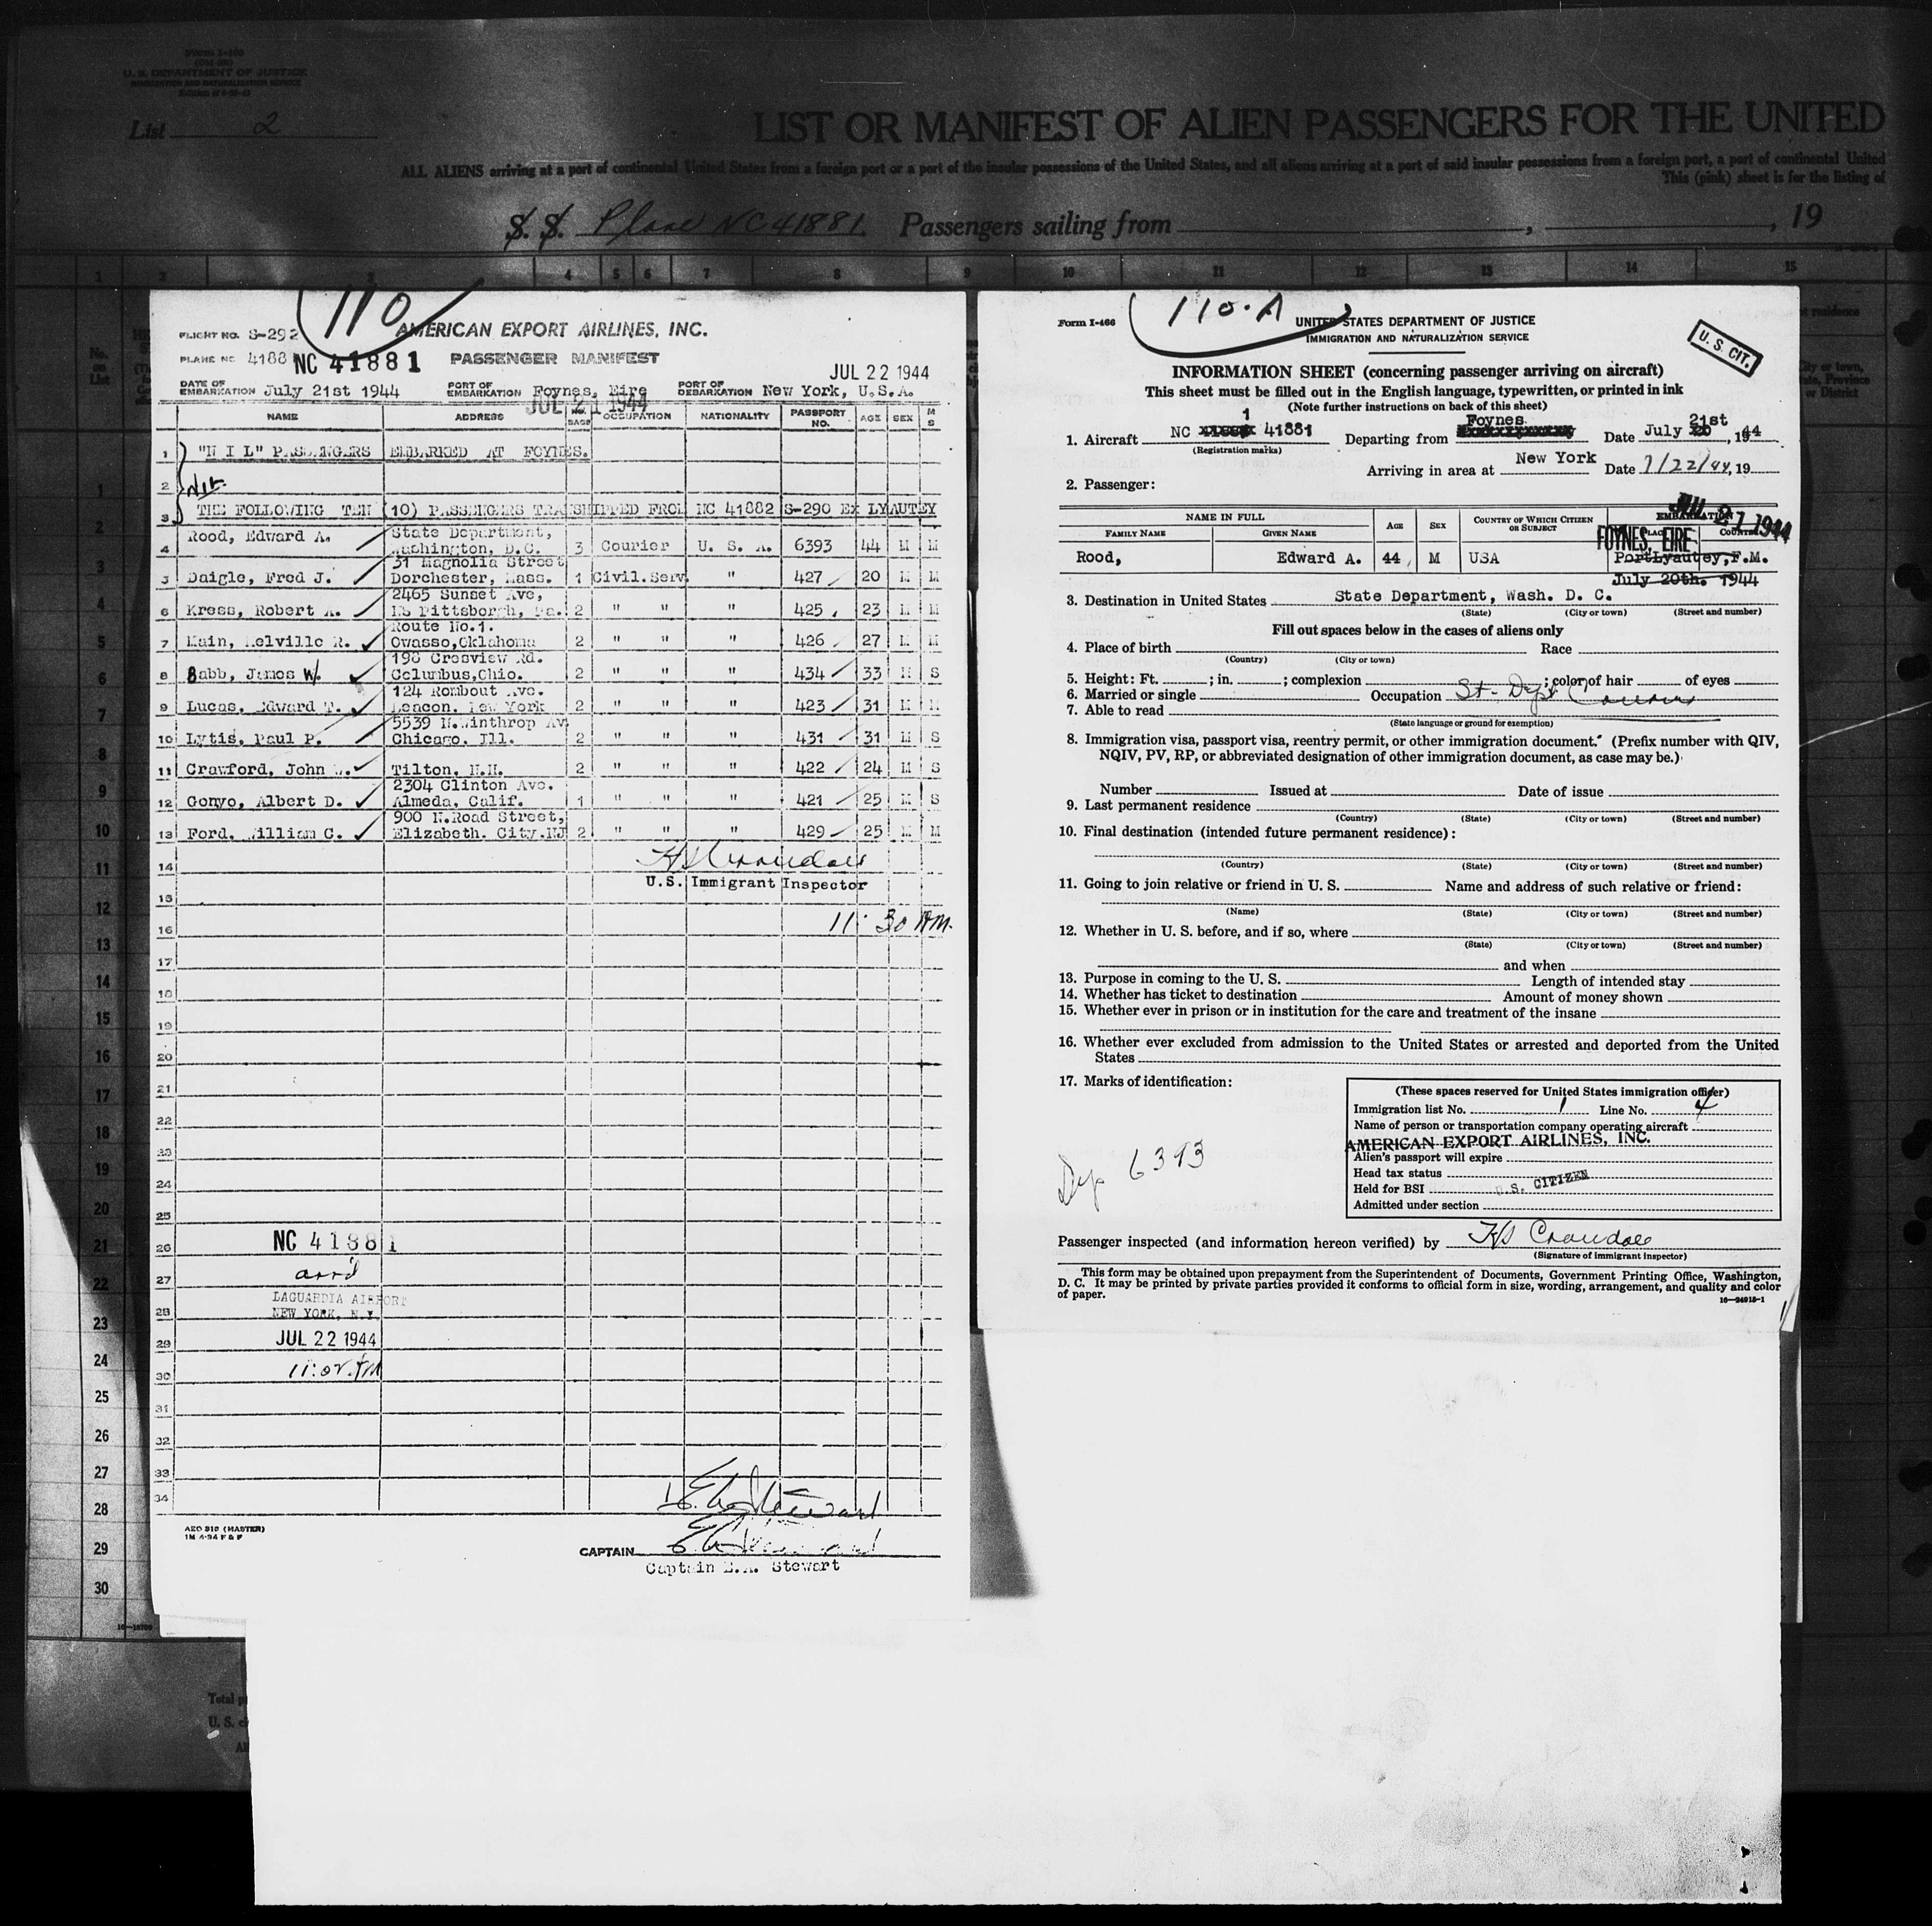 Form I-466
U. S. DEPARTMENT OF JUSTICE
IMMIGRATION AND NATURALIZATION SERVICE
List 2
LIST OR MANIFEST OF ALIEN PASSENGERS FOR THE UNITED
ALL ALIENS arriving at a port of continental United States from a foreign port or a port of the insular possessions of the United States, and all aliens arriving at a port of said insular possessions from a foreign port, a port of continental United
This (pink) sheet is for the listing of
S. S. Plane NC 41881. Passengers sailing from , , 19
1 2 3 4 5 6 7 8 9 10 11 12 13 14 15
No. on List
110
FLIGHT NO. S-292 AMERICAN EXPORT AIRLINES, INC.
PLANE NC 4188 NC 41881 PASSENGER MANIFEST
JUL 22 1944
DATE OF EMBARKATION July 21st 1944 PORT OF EMBARKATION Foynes, Eire PORT OF DEBARKATION New York, U.S.A.
JUL 21 1944
NAME ADDRESS BAGS OCCUPATION NATIONALITY PASSPORT NO. AGE SEX M S
1 "N I L" PASSENGERS EMBARKED AT FOYNES.
2 Nil.
3 THE FOLLOWING TEN (10) PASSENGERS TRANSHIPPED FROM NC 41882 S-290 Ex LYAUTEY
4 Rood, Edward A. State Department, Washington, D.C. 3 Courier U. S. A. 6393 44 M M
5 Daigle, Fred J. 31 Magnolia Street Dorchester, Mass. 1 Civil.Serv. " 427 20 M M
6 Kress, Robert A. 2465 Sunset Ave, NS Pittsborgh, Pa. 2 " " " 425 23 M M
7 Main, Melville R. Route No.1. Owasso,Oklahoma 2 " " " 426 27 M M
8 Babb, James W. 198 Cresview Rd. Columbus,Ohio. 2 " " " 434 33 M S
9 Lucas, Edward T. 124 Rombout Ave. Beacon, New York 2 " " " 423 31 M M
10 Lytis, Paul P. 5539 N.Winthrop Av Chicago, Ill. 2 " " " 431 31 M S
11 Crawford, John W. Tilton, N.H. 2 " " " 422 24 M S
12 Gonyo, Albert D. 2304 Clinton Ave. Almeda, Calif. 1 " " " 421 25 M S
13 Ford, William C. 900 N.Road Street, Elizabeth. City.NJ 2 " " " 429 25 M M
14 HS Crandall
U.S. Immigrant Inspector
15
16 11:30 AM.
17
18
19
20
21
22
23
24
25
26 NC 41881
27 arrd
28 LAGUARDIA AIRPORT
NEW YORK, N.Y.
29 JUL 22 1944
30
31
32
33
34
AEO 810 (MASTER)
CAPTAIN
Captain E.A. Stewart
Form I-466
110-A
UNITED STATES DEPARTMENT OF JUSTICE
IMMIGRATION AND NATURALIZATION SERVICE
U. S CIT.
INFORMATION SHEET (concerning passenger arriving on aircraft)
This sheet must be filled out in the English language, typewritten, or printed in ink
(Note further instructions on back of this sheet)
1. Aircraft NC 41881 Departing from Foynes Date July 21st, 1944
(Registration marks)
Arriving in area at New York Date 7/22/44, 19
2. Passenger:
NAME IN FULL AGE SEX COUNTRY OF WHICH CITIZEN OR SUBJECT EMBARKATION
FAMILY NAME GIVEN NAME PLACE COUNTRY
JUL 21 1944
FOYNES, EIRE
Rood, Edward A. 44 M USA PortLyautey,F.M.
July 20th. 1944
3. Destination in United States State Department, Wash. D. C.
(State) (City or town) (Street and number)
Fill out spaces below in the cases of aliens only
4. Place of birth Race
(Country) (City or town)
5. Height: Ft. ; in. ; complexion ; color of hair of eyes
6. Married or single Occupation St-Dept Courier
7. Able to read
(State language or ground for exemption)
8. Immigration visa, passport visa, reentry permit, or other immigration document. (Prefix number with QIV,
NQIV, PV, RP, or abbreviated designation of other immigration document, as case may be.)
Number Issued at Date of issue
9. Last permanent residence
(Country) (State) (City or town) (Street and number)
10. Final destination (intended future permanent residence):
(Country) (State) (City or town) (Street and number)
11. Going to join relative or friend in U. S. Name and address of such relative or friend:
(Name) (State) (City or town) (Street and number)
12. Whether in U. S. before, and if so, where
(State) (City or town) (Street and number)
and when
13. Purpose in coming to the U. S. Length of intended stay
14. Whether has ticket to destination Amount of money shown
15. Whether ever in prison or in institution for the care and treatment of the insane
16. Whether ever excluded from admission to the United States or arrested and deported from the United
States
17. Marks of identification:
(These spaces reserved for United States immigration officer)
Immigration list No. 1 Line No. 4
Name of person or transportation company operating aircraft
AMERICAN EXPORT AIRLINES, INC.
Alien's passport will expire
Head tax status
Held for BSI U.S. CITIZEN
Admitted under section
Dip 6393
Passenger inspected (and information hereon verified) by HS Crandall
(Signature of immigrant inspector)
This form may be obtained upon prepayment from the Superintendent of Documents, Government Printing Office, Washington,
D. C. It may be printed by private parties provided it conforms to official form in size, wording, arrangement, and quality and color
of paper.
16—24915-1
1
2
3
4
5
6
7
8
9
10
11
12
13
14
15
16
17
18
19
20
21
22
23
24
25
26
27
28
29
30
Total
U. S.